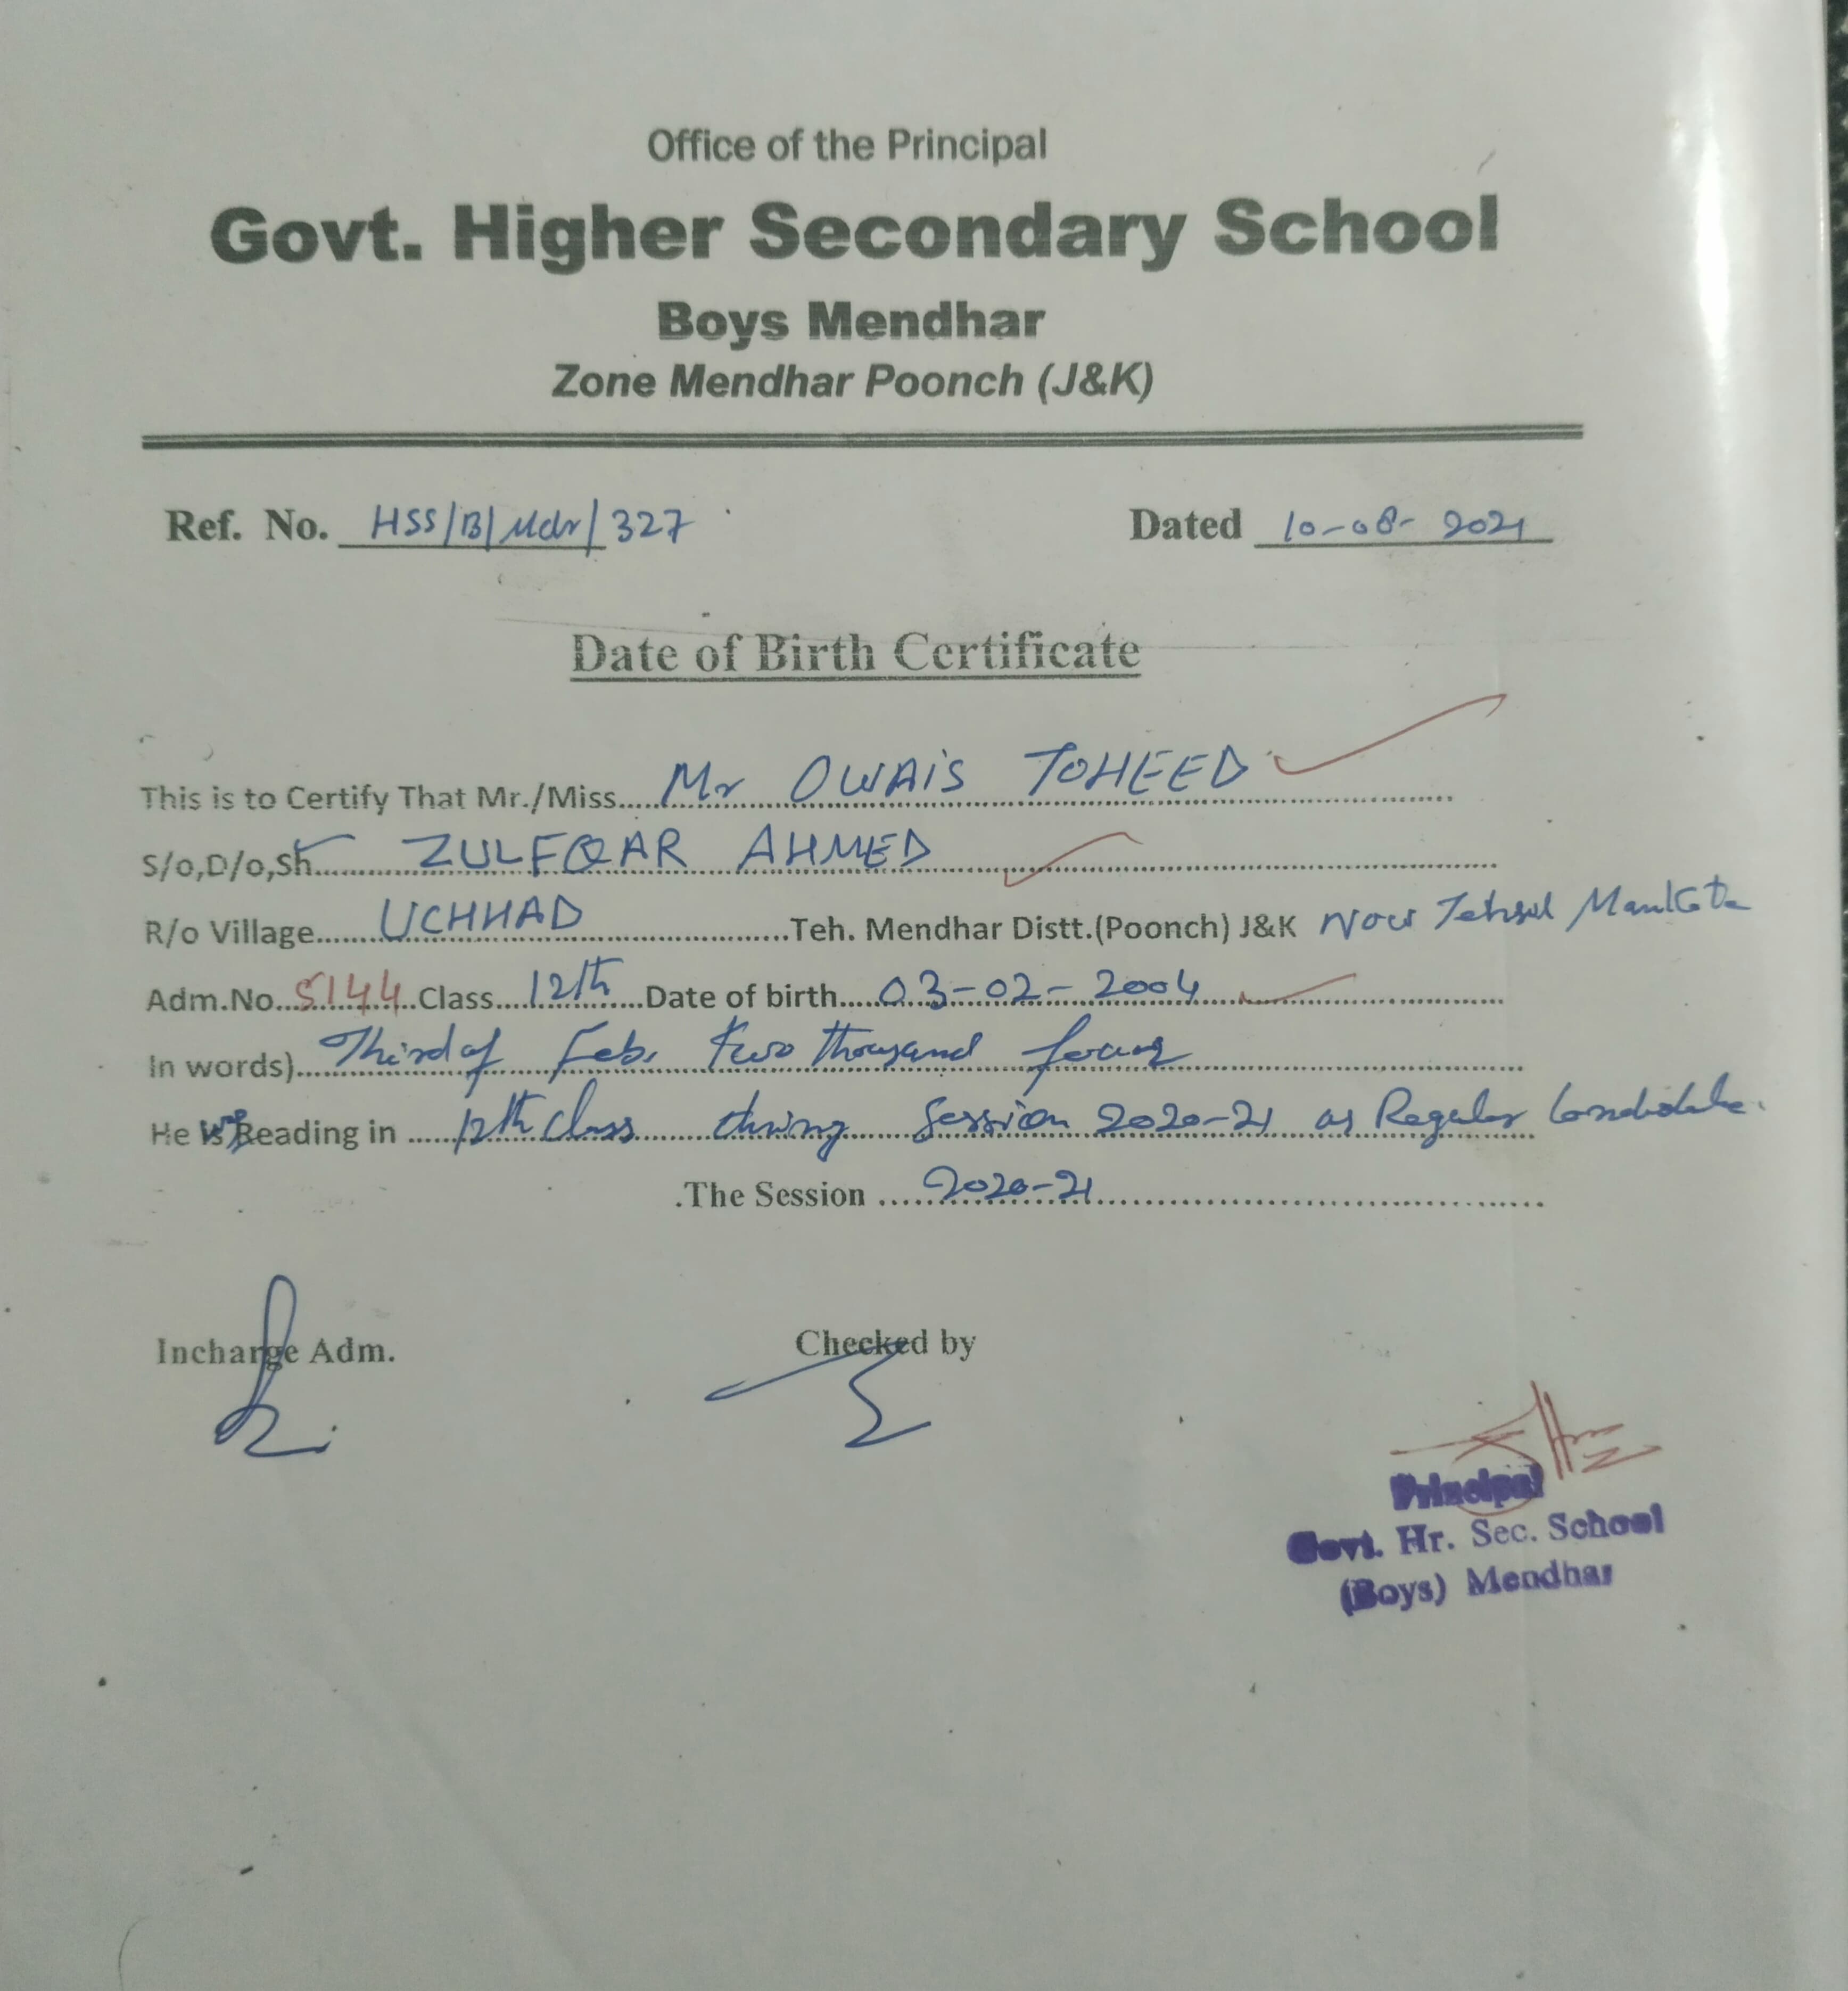 Office of the Principal
Govt. Higher Secondary School
Boys Mendhar
Zone Mendhar Poonch (J&K)
Ref. No. HSS/B/Mdr/327 Dated 10-08-2021
Date of Birth Certificate
This is to Certify That Mr./Miss.....Mr OWAIS TOHEED
S/o,D/o,Sh.....ZULFQAR AHMED
R/o Village.......UCHHAD.......Teh. Mendhar Distt.(Poonch) J&K Now Tehsil Mankote
Adm.No...5144...Class....12th.....Date of birth.....03-02-2004
In words)....Third of Feb. two thousand four
He was Reading in ......12th class during Session 2020-21 as Regular Candidate.
.The Session .....2020-21
Incharge Adm. Checked by
Principal
Govt. Hr. Sec. School
(Boys) Mendhar